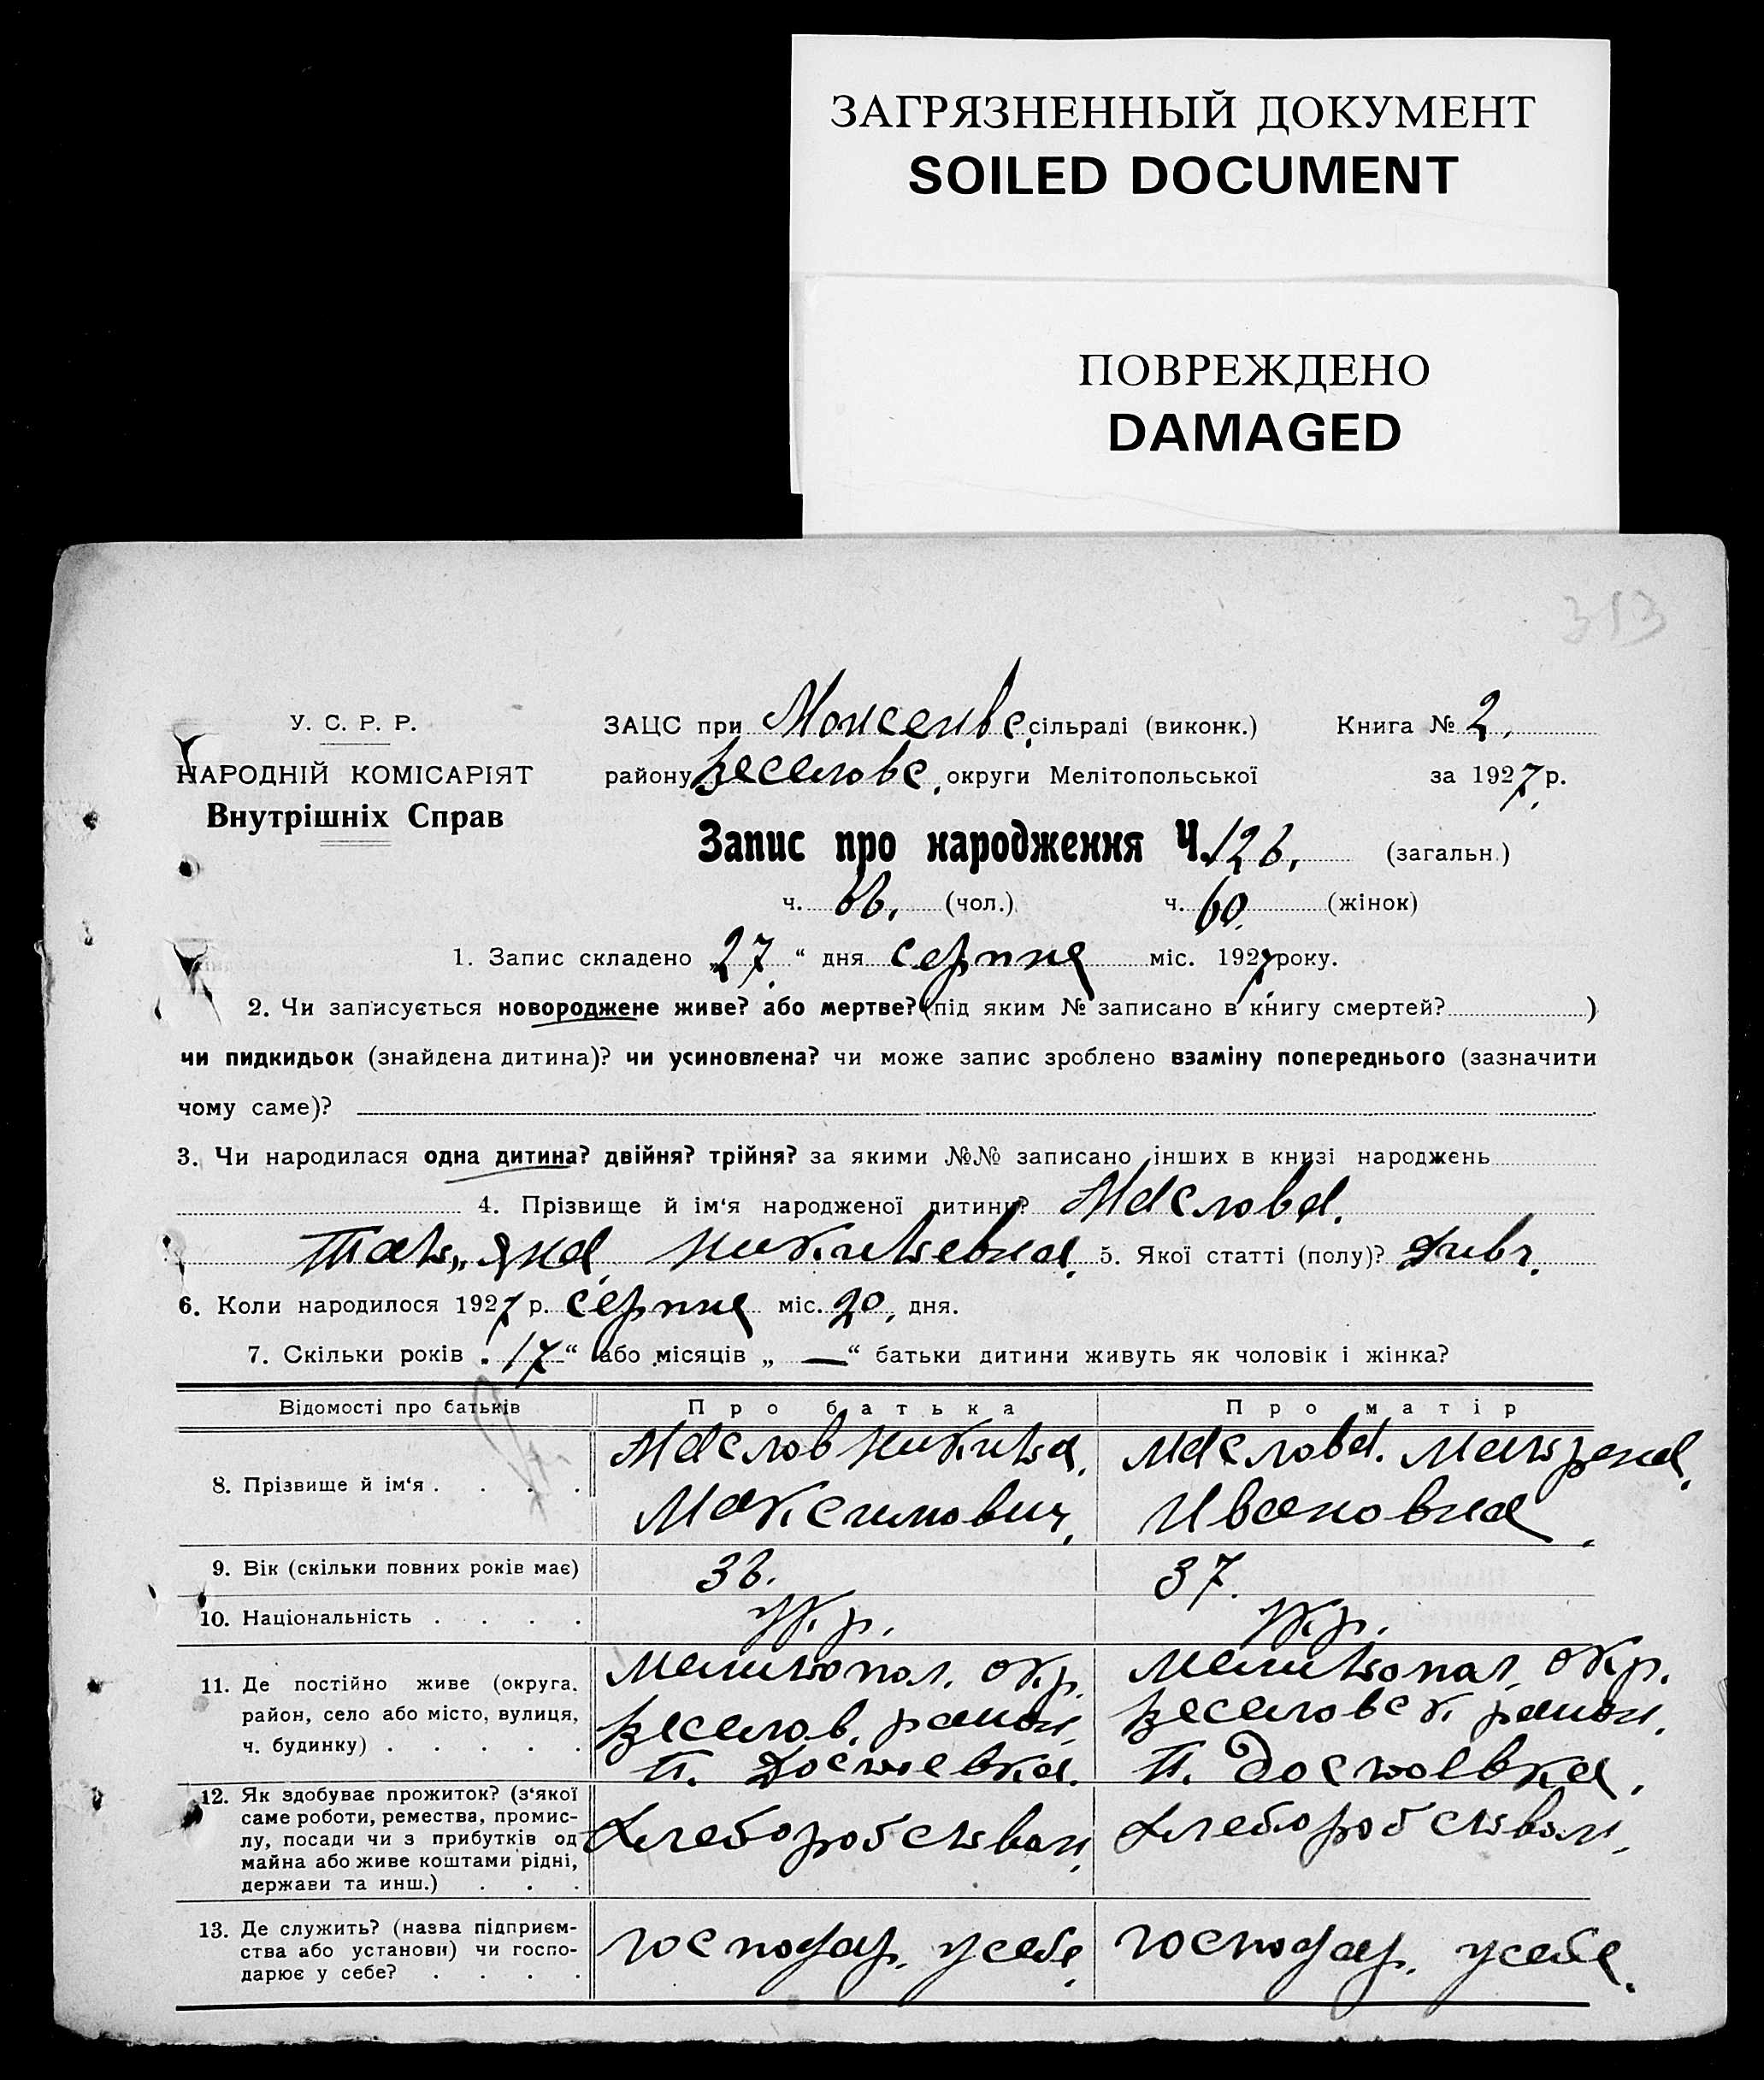 ЗАГРЯЗНЕННЫЙ ДОКУМЕНТ
SOILED DOCUMENT
ПОВРЕЖДЕНО
DAMAGED
313
У. С. Р. Р.
ЗАЦС при Моисеивс. сільраді (виконк.) Книга № 2.
НАРОДНІЙ КОМІСАРІЯТ
району Веселовс. округи Мелітопольської за 1927 р.
Внутрішніх Справ
Запис про народження Ч. 126. (загальн.)
ч. 66. (чол.) ч. 60. (жінок)
1. Запис складено „27“ дня серпня міс. 1927 року.
2. Чи записується новороджене живе? або мертве? (під яким № записано в книгу смертей? )
чи пидкидьок (знайдена дитина)? чи усиновлена? чи може запис зроблено взаміну попереднього (зазначити
чому саме)?
3. Чи народилася одна дитина? двійня? трійня? за якими №№ записано інших в книзі народжень
4. Прізвище й ім‘я народженої дитини? Маслова.
Тать„яна Никитевна. 5. Якої статті (полу)? дивч.
6. Коли народилося 1927 р. серпня міс. 20, дня.
7. Скільки років „17“ або місяців „—“ батьки дитини живуть як чоловік і жінка?
Відомості про батьків Про батька Про матір
8. Прізвище й ім‘я . . . . Маслов Никита. Маслова. Матрена.
Максимович, Ивановна.
9. Вік (скільки повних років має) 36. 37.
10. Національність . . . . Укр. Укр.
11. Де постійно живе (округа, Мелитопол. окр. Мелитопол. окр.
район, село або місто, вулиця, Веселов. район, Веселовск. район.
ч. будинку) . . . . . П. Достоевка. П. Достоевка.
12. Як здобуває прожиток? (з‘якої
саме роботи, ремества, промис-
лу, посади чи з прибутків од Хлеборобством. Хлеборобством.
майна або живе коштами рідні,
держави та инш.) . . .
13. Де служить? (назва підприєм-
ства або установи) чи госпо- господар. усебе. господар. усебе.
дарює у себе? . . . .